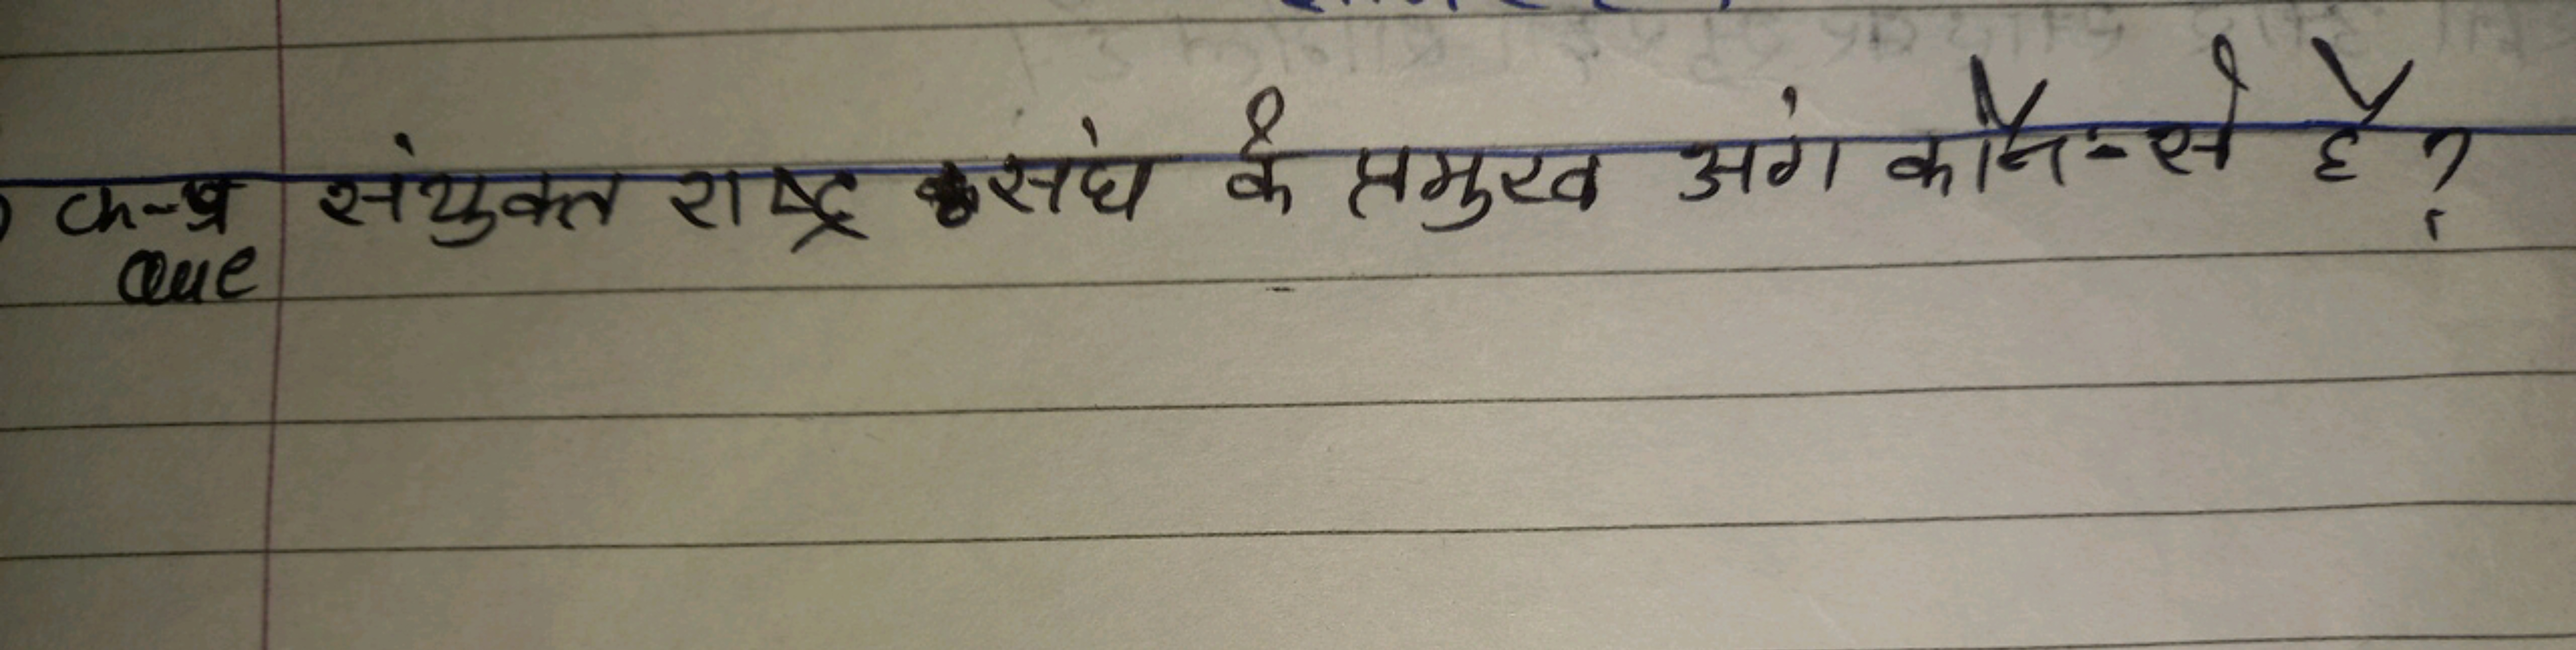 क-प्र संयुक्त राष्ट्र संघ के प्रमुख अंग कौन-से है ?
Que